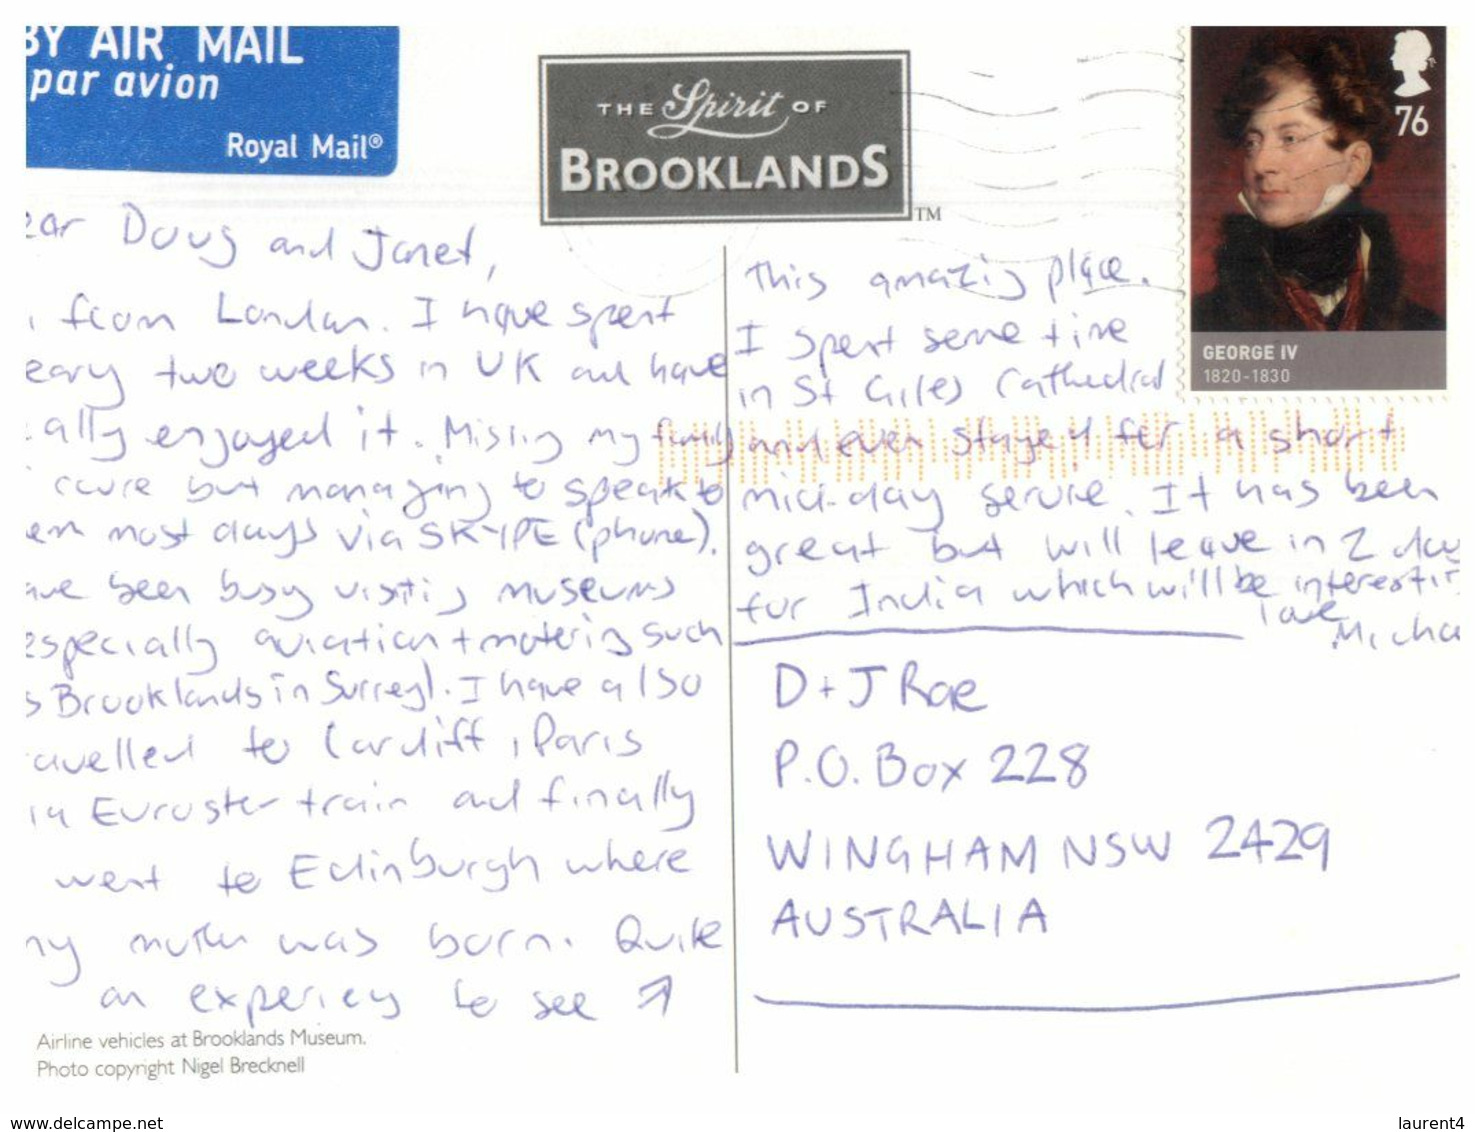 BY AIR MAIL
par avion
Royal Mail®
THE Spirit OF
BROOKLANDS
TM
76
GEORGE IV
1820-1830
ear Doug and Janet,
from London. I have spent
eary two weeks in UK and have
eally enjoyed it. Missing my family
course but managing to speak to
em most days via SKYPE (phone).
ave been busy visiting museums
especially aviation + motoring such
s Brooklands in Surrey). I have also
avelled to Cardiff, Paris
ia Eurostar train and finally
went to Edinburgh where
my mother was born. Quite
an experiency to see ↗
Airline vehicles at Brooklands Museum.
Photo copyright Nigel Brecknell
this amazing place.
I spent some time
in St Giles Cathedral
and even stayed for a short
mid-day service. It has been
great but will leave in 2 day
for India which will be interestin
love
Micha
D + J Rae
P.O. Box 228
WINGHAM NSW 2429
AUSTRALIA
www.delcampe.net
laurent4